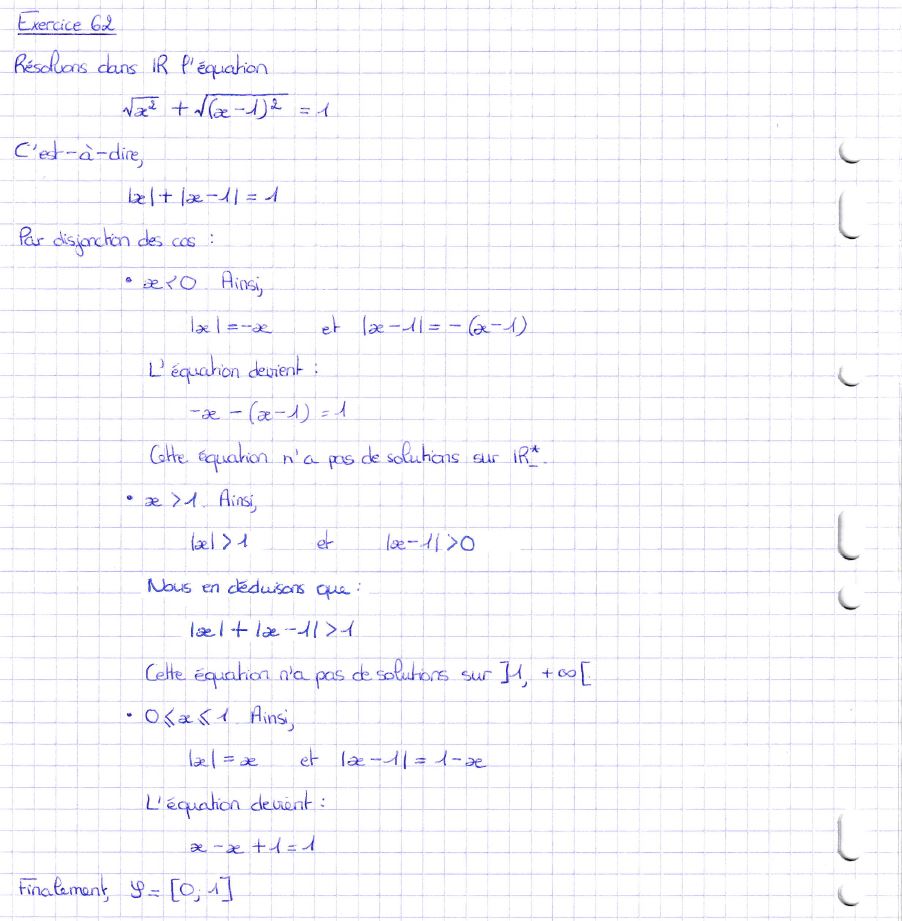 Exercice 62
Résolvons dans ℝ l'équation
√x² + √(x-1)² = 1
C'est-à-dire,
|x| + |x-1| = 1
Par disjonction des cas :
• x < 0 Ainsi,
|x| = -x et |x-1| = -(x-1)
L'équation devient :
-x - (x-1) = 1
Cette équation n'a pas de solutions sur ℝ*₋.
• x > 1. Ainsi,
|x| > 1 et |x-1| > 0
Nous en déduisons que :
|x| + |x-1| > 1
Cette équation n'a pas de solutions sur ]1, +∞[.
• 0 ⩽ x ⩽ 1 Ainsi,
|x| = x et |x-1| = 1-x
L'équation devient :
x - x + 1 = 1
Finalement, 𝒮 = [0; 1]